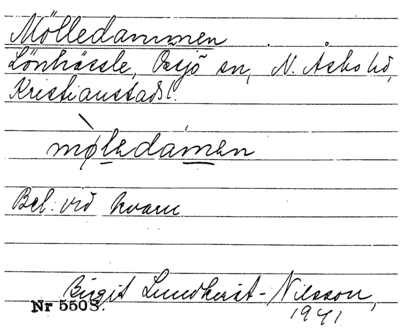 Mölledammen
Lönhässle, Ossjö sn, N. Åsbo hd,
Kristianstads l.
mø̀ledámen
Bel. vid kvarn
Birgit Lundkvist-Nilsson,
Nr 5503. 1941